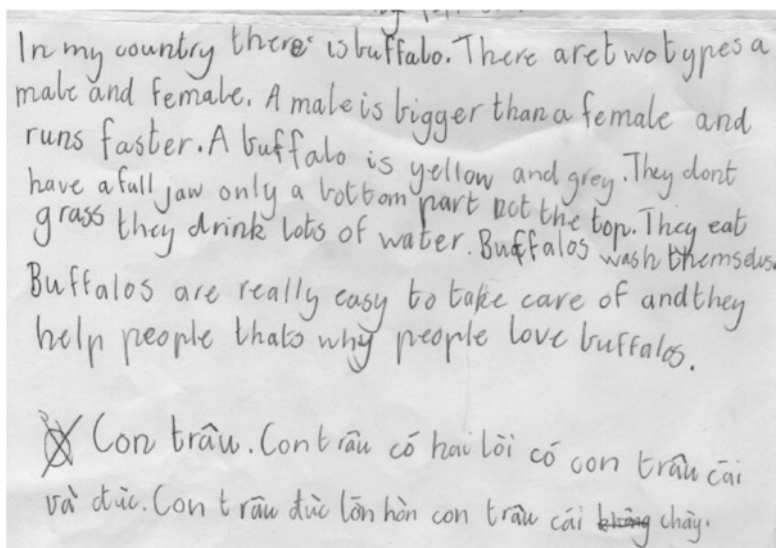 In my country there is buffalo. There are two types a
male and female. A male is bigger than a female and
runs faster. A buffalo is yellow and grey. They dont
have a full jaw only a bottom part not the top. They eat
grass they drink lots of water. Buffalos wash themselus.
Buffalos are really easy to take care of and they
help people thats why people love buffalos.
Con trâu. Con trâu có hai lòi có con trâu cāi
và đừc. Con trâu đừc lōn hòn con trâu cái không chày.